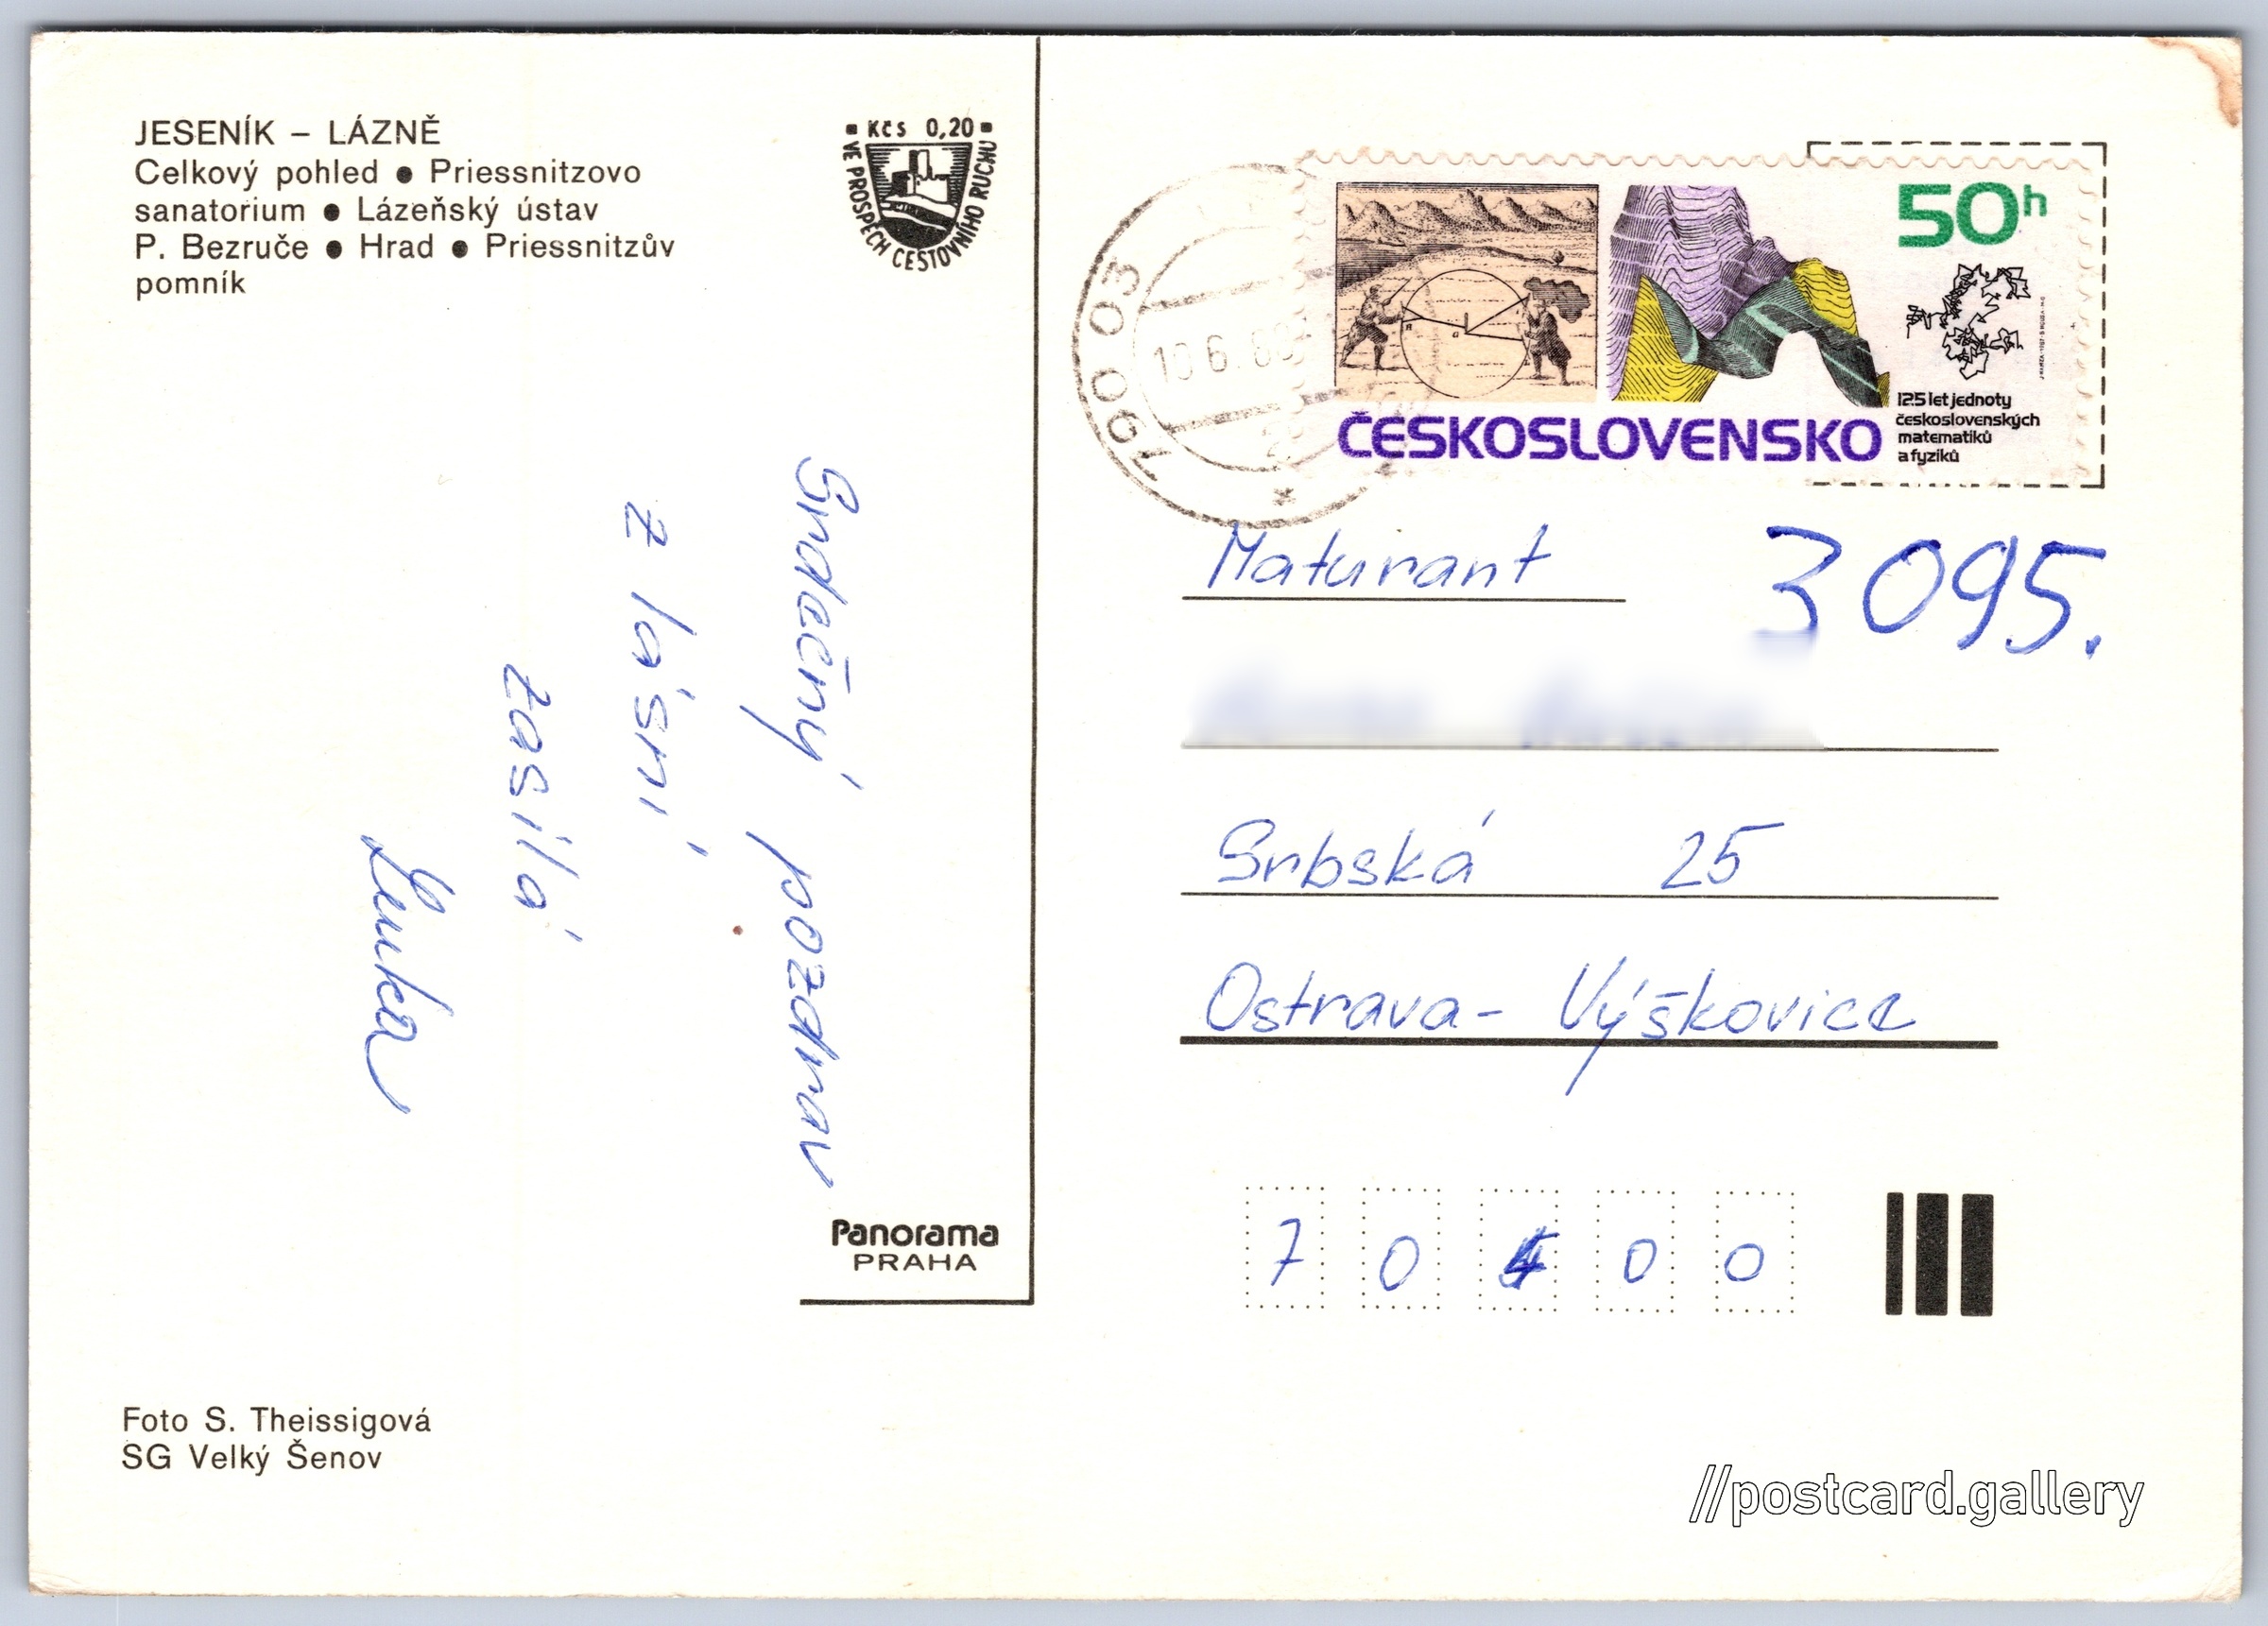 JESENÍK – LÁZNĚ
Celkový pohled ● Priessnitzovo
sanatorium ● Lázeňský ústav
P. Bezruče ● Hrad ● Priessnitzův
pomník
Kčs 0,20
VE PROSPĚCH CESTOVNÍHO RUCHU
Srdečný pozdrav
z lásní
zasílá
Lenka
Panorama
PRAHA
Foto S. Theissigová
SG Velký Šenov
790 03
50h
125 let jednoty
československých
matematiků
a fyziků
ČESKOSLOVENSKO
Maturant 3095.
Srbská 25
Ostrava- Výškovice
7 0 0 0
//postcard.gallery